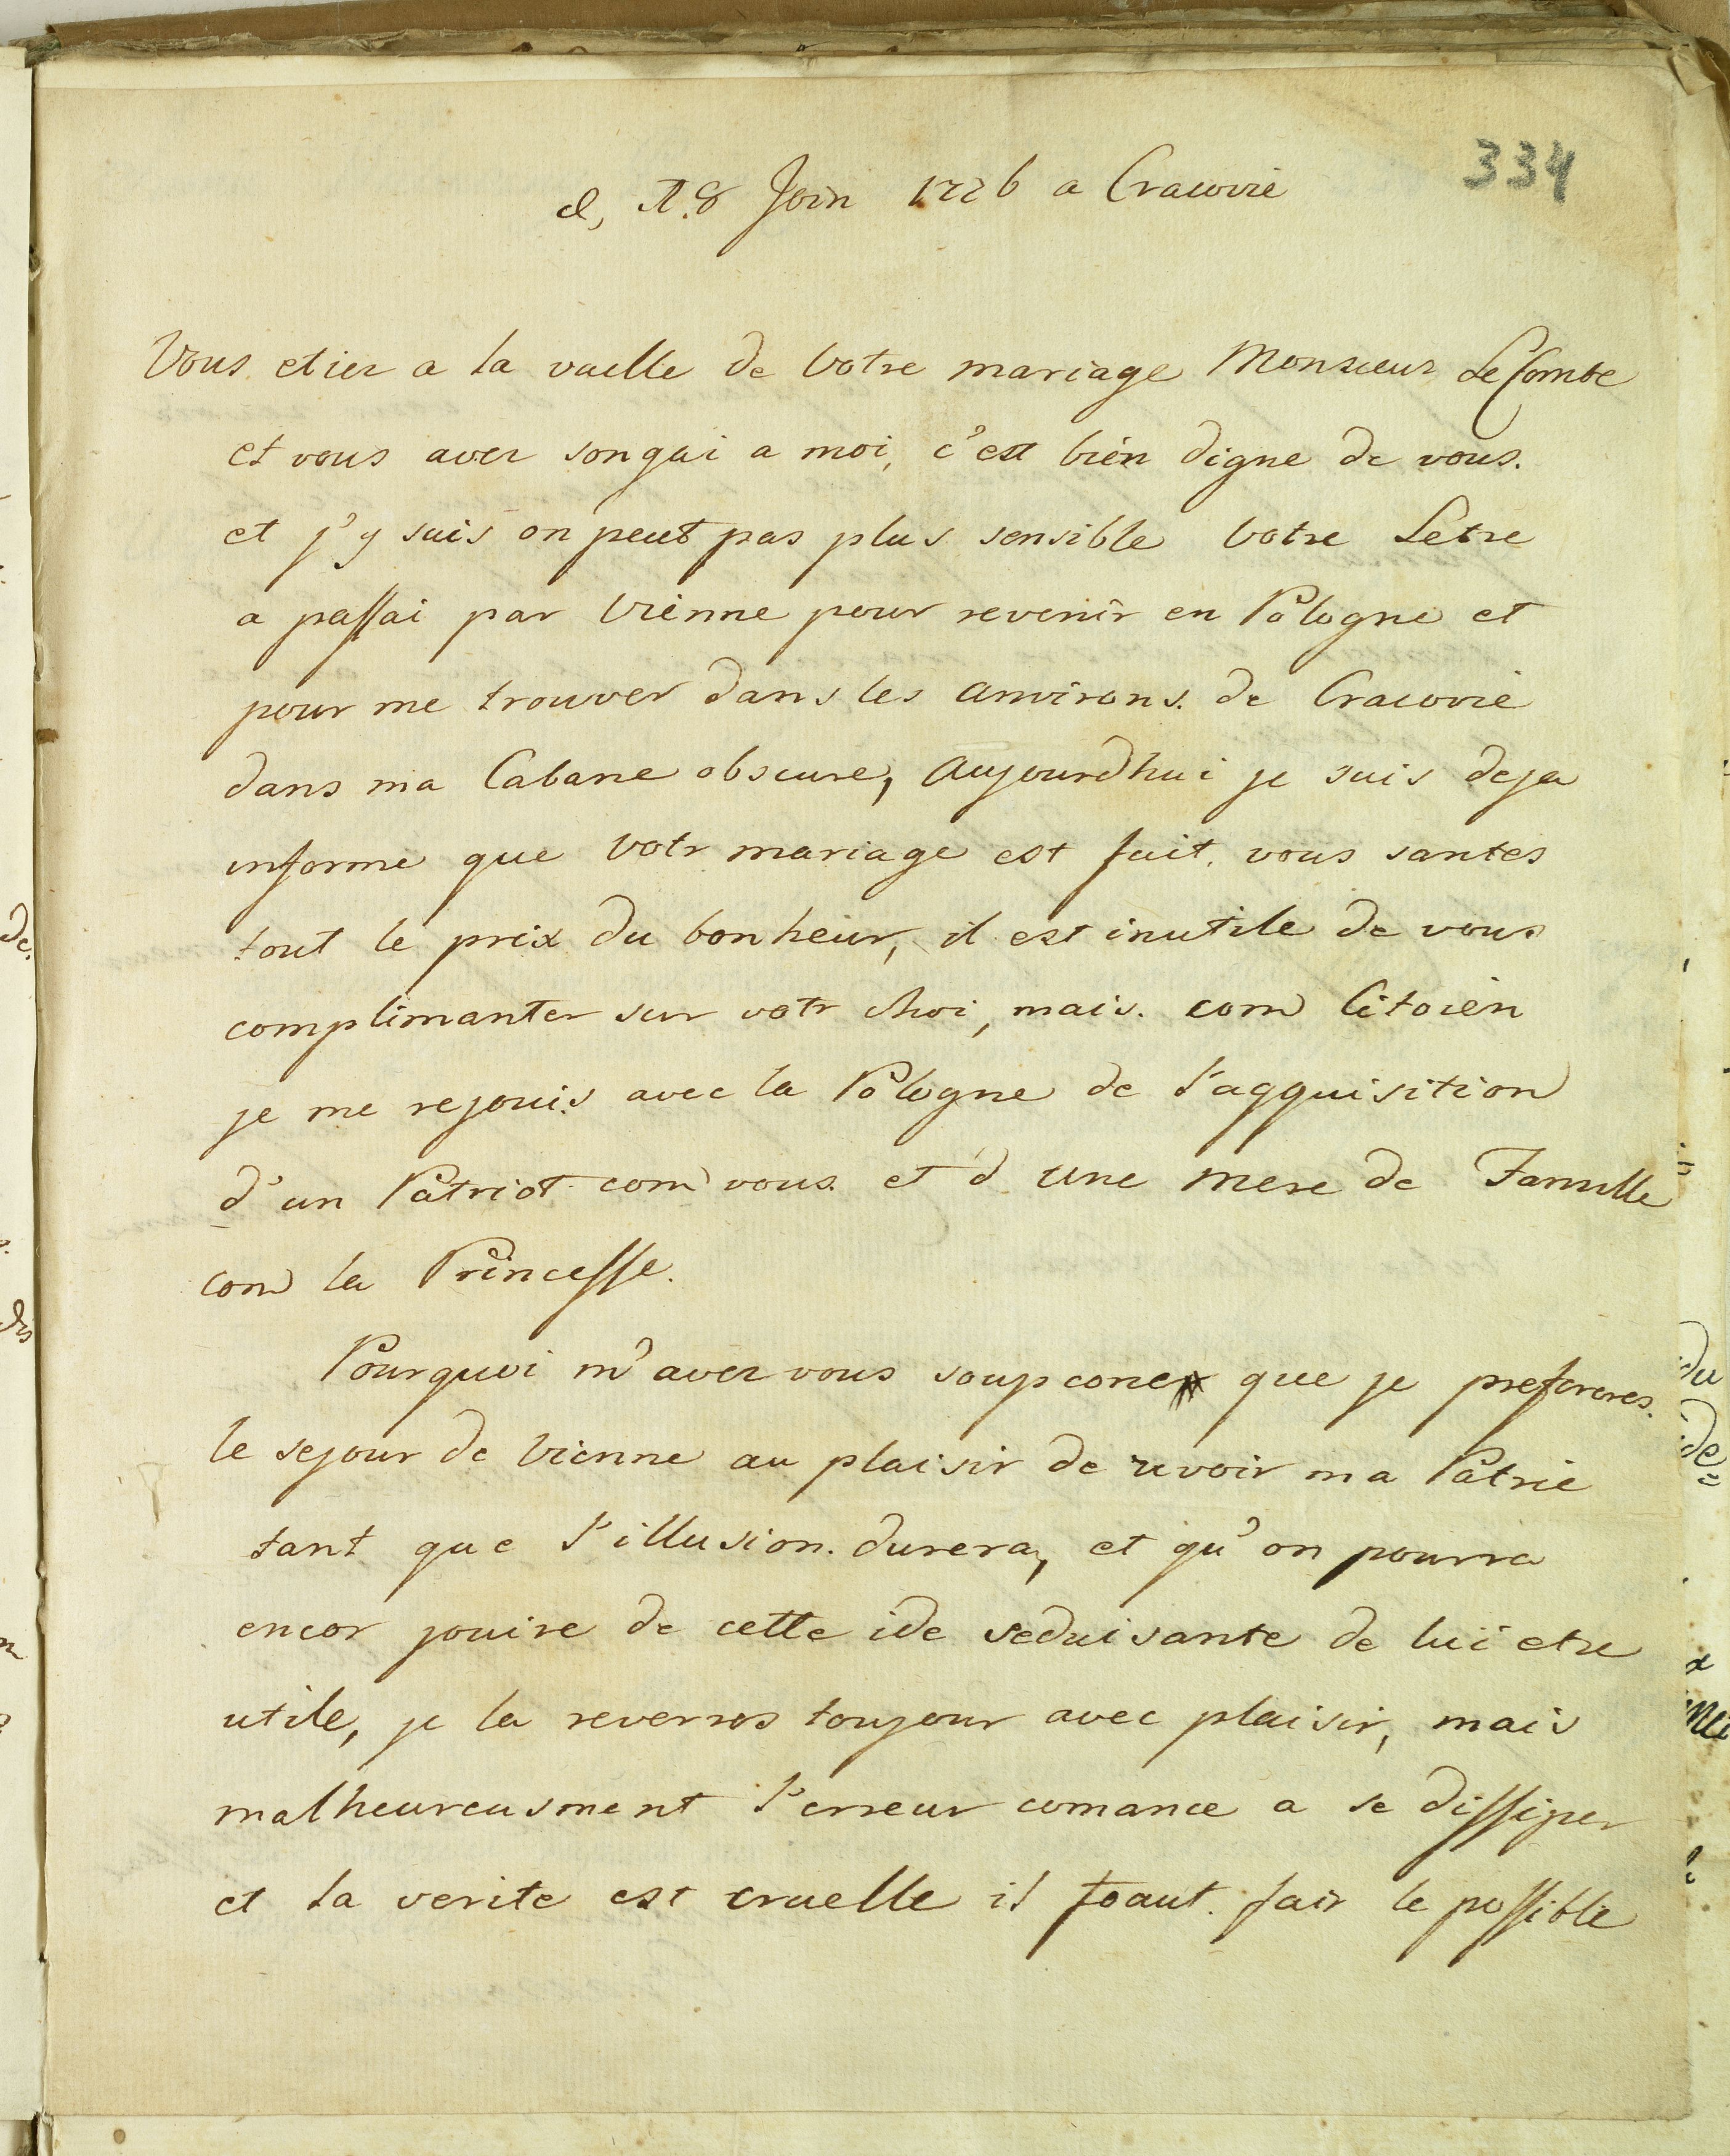 334
d, 18 Join 1776 a Cracovie
Vous etiez a la vaelle de Votre mariage Monsieur Le Comte
et vous avez songai a moi, c'est bien digne de vous.
et j'y suis on peut pas plus sensible Votre Letre
a passai par Vienne pour revenir en Pologne et
pour me trouver dans les anvirons. de Cracovie
dans ma Cabane obscure, Aujourdhui je suis deja
informé que Votr mariage est fait. vous santes
tout le prix du bonheur, il est inutile de vous
complimanter sur votr choi, mais. com Citoien
je me rejouis avec la Pologne de l'aqquisition
d'un Patriot com vous. et d'une Mere de Famille
com la Princesse.
Pourquoi m'avez vous soupcone que je prefereres.
le sejour de Vienne au plaisir de revoir ma Patrie
tant que l'illusion. durera, et qu'on pourra
encor jouire de cette ide seduisante de lui etre
utile, je la reverres toujour avec plaisir, mais
malheureusment l'erreur comance a se dissiper
et la verite est cruelle il foaut. fair le possible